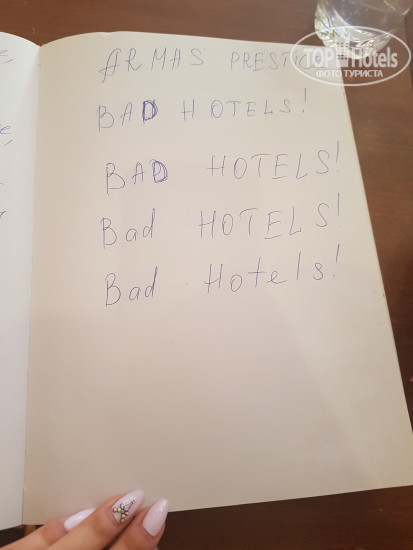 TOP Hotels
ФОТО ТУРИСТА
ARMAS
BAD HOTELS!
BAD HOTELS!
Bad HOTELS!
Bad Hotels!